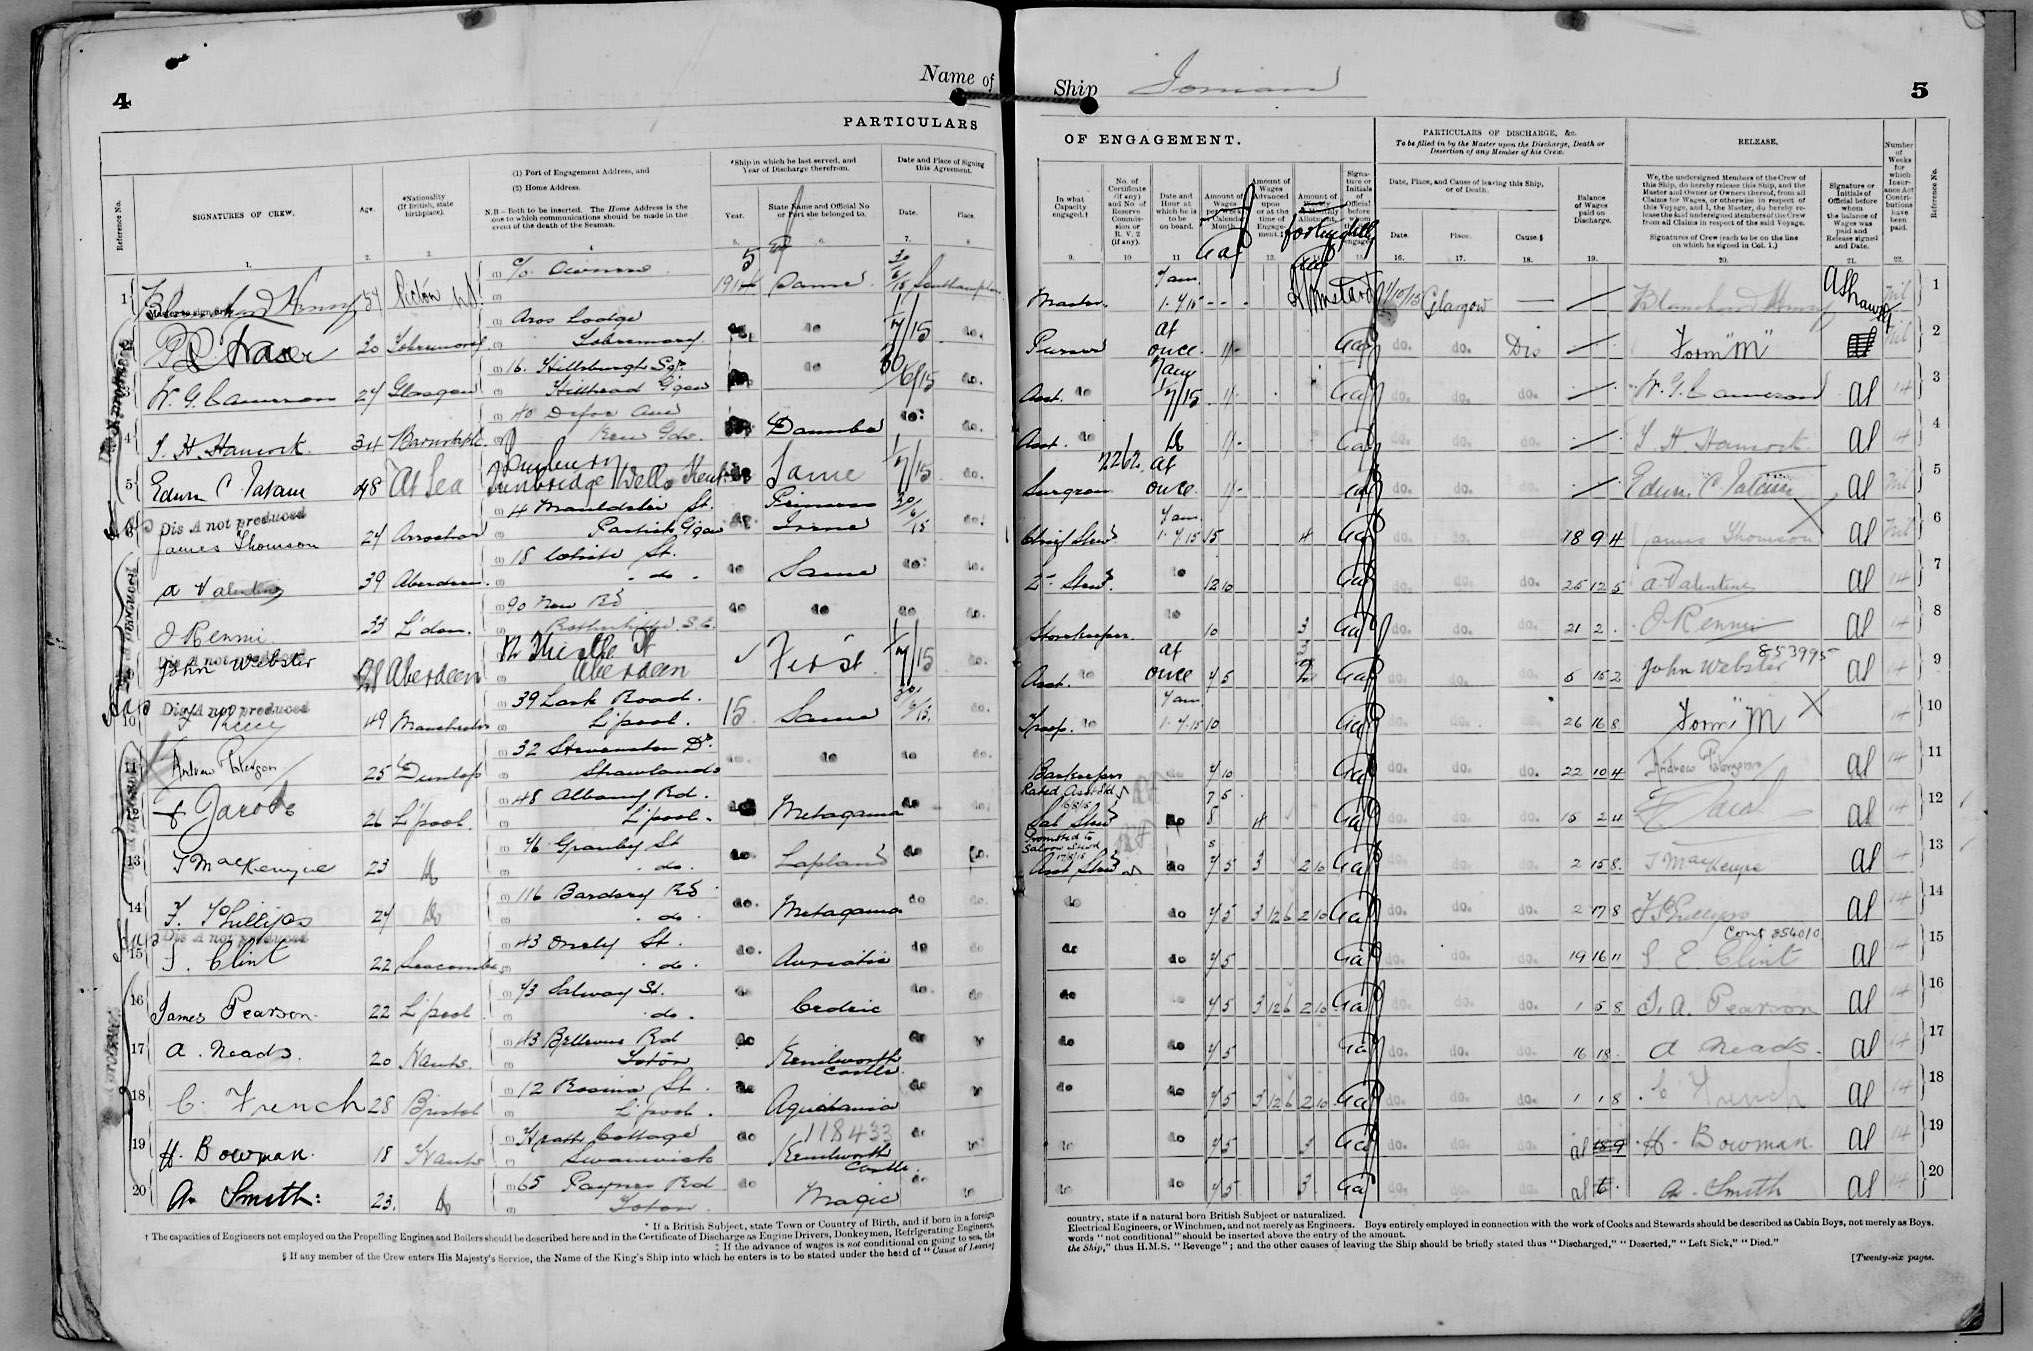 4
Name of
PARTICULARS
Reference No.
SIGNATURES OF CREW.
Age.
*Nationality
(If British, state
birthplace).
(1) Port of Engagement Address, and
(2) Home Address.
N.B – Both to be inserted. The Home Address is the
one to which communications should be made in the
event of the death of the Seaman.
*Ship in which he last served, and
Year of Discharge therefrom.
Year.
State Name and Official No
or Port she belonged to.
Date and Place of Signing
this Agreement.
Date.
Place.
1 Blanchard Henry Picton c/o Owners Same Southampton
2 Fraser 20 Tobermory Aros Lodge Tobermory do 1/7/15 do.
3 W. G. Cameron 24 Glasgow 16. Hillhead G'gow do 30/6/15 do.
4 T. H. Hancock 34 Kew Gdns. do.
5 Edwin C Tatam 48 At Sea Tunbridge Wells Kent Same 1/7/15 do.
6 Dis A not produced
James Thomson 24 Arrochar 4 St. Partick G'gow Princess Irene 30/6/15 do.
a Valentine 39 Aberdeen. 18 White St. do. do Same do. do.
J Rennie 33 L'don. 90 New Rd Rotherhithe S.E. do do do do.
Dis A not produced
John Webster Aberdeen 12 Thistle St Aberdeen First 1/7/15 do.
10 Dis A not produced
49 Manchester 39 Lark Road. L'pool. 15. Same 30/6/15. do.
11 Andrew Paterson 25 Dunlop 32 Stevenston Dr. Shawlands do. do do do.
12 26 L'pool. 48 Albany Rd. L'pool. Metagama do do.
13 T MacKenzie 23 Do 46 Granby St do. do. Lapland do do.
14 F. Phillips 24 Do 116 Bardsay Rd do. do. Metagama do do
15 Dis A not produced
Clint 22 Seacombe 43 St. do. do. Adriatic do do
16 James Pearson. 22 L'pool 43 Salway St. do. do Cedric do. do
17 A. Neads. 20 Hants. 43 Bellevue Rd Soton Kenilworth Castle. do
18 C. French 28 Bristol 12 St. L'pool. Aquitania do
19 H. Bowman. 18 Hants Cottage Swanwick do 118433 Kenilworth Castle. do
20 A. Smith: 23. Do 65 Paynes Rd Soton. do Magic do
* If a British Subject, state Town or Country of Birth, and if born in a foreign
† The capacities of Engineers not employed on the Propelling Engines and Boilers should be described here and in the Certificate of Discharge as Engine Drivers, Donkeymen, Refrigerating Engineers,
‡ If the advance of wages is not conditional on going to sea, the
§ If any member of the Crew enters His Majesty's Service, the Name of the King's Ship into which he enters is to be stated under the head of "Cause of Leaving
Ship Ionian
5
OF ENGAGEMENT.
In what
Capacity
engaged.†
No. of
Certificate
(if any)
and No. of
Reserve
Commis-
sion or
R. V. 2
(if any).
Date and
Hour at
which he is
to be
on board.
Amount of
Wages
per Week or
Calendar
Month.
Amount of
Wages
Advanced
upon
or at the
time of
Engage-
ment.‡
Amount of
Monthly
Allotment.
fortnightly
PARTICULARS OF DISCHARGE, &c.
To be filled in by the Master upon the Discharge, Death or
Desertion of any Member of his Crew.
Date, Place, and Cause of leaving this Ship,
or of Death.
Date.
Place.
Cause.§
Balance
of Wages
paid on
Discharge.
RELEASE,
We, the undersigned Members of the Crew of
this Ship, do hereby release this Ship, and the
Master and Owner or Owners thereof, from all
Claims for Wages, or otherwise in respect of
this Voyage, and I, the Master, do hereby re-
lease the said undersigned Members of the Crew
from all Claims in respect of the said Voyage.
Signatures of Crew (each to be on the line
on which he signed in Col. 1.)
Signature or
Initials of
Official before
whom
the balance of
Wages was
paid and
Release signed
and Date.
Number
of
Weeks
for
which
Insur-
ance Act
Contri-
butions
have
been
paid.
Reference No.
Master. 7 am. 1.7.15 Glasgow Blanchard Henry Nil 1
Purser at once 1/- do. do. Dis Form "M" Nil 2
Asst. do 7 am 1/7/15 1/- do. do. do. W. G. Cameron 14 3
Asst. do Do 1/- do. do. do. T. H. Hancock 14 4
Surgeon 2262 at once 1/- do. do. do. Edwin. C. Tatam Nil 5
Chief Stewd 7 am. 1.7.15 15 4 do. do. do. 18 9 4 James Thomson Nil 6
2nd Stewd do 12 10 do. do. do. 25 12 5 A. Valentine 14 7
Storekeeper. do 10 3 do. do. do. 21 2 J Rennie 14 8
Asst. at once 4 5 2 do. do. do. 5 15 2 John Webster 853995 14 9
Troop. do 7 am. 1.7.15 10 do. do. do. 26 16 8 Form "M" X 14 10
Barkeeper do 4 10 do. do. do. 22 10 4 Andrew Paterson 14 11
Rated Asst Std 16/8/15 7 5
Sal Stewd do 8 4 do. do. do. 15 2 4 14 12
Promoted to Saloon Stewd 17/8/15
Asst Stewd do 4 5 3 2 10 do. do. do. 2 15 8. T MacKenzie 14 13
do do 4 5 3 12 6 2 10 do. do. do. 2 17 8 F Phillips 14 14
do do 4 5 do. do. do. 19 16 11 S E Clint Cont 854010 14 15
do do 4 5 3 12 6 2 10 do. do. do. 1 5 8 J. A. Pearson 14 16
do do 4 5 do. do. do. 16 18 A Neads. 14 17
do do 4 5 3 12 6 2 10 do. do. do. 1 1 8 C French 14 18
do do 4 5 3 do. do. do. H. Bowman. 14 19
do do 4 5 3 do. do. do. A. Smith 14 20
country, state if a natural born British Subject or naturalized.
Electrical Engineers, or Winchmen, and not merely as Engineers. Boys entirely employed in connection with the work of Cooks and Stewards should be described as Cabin Boys, not merely as Boys.
words "not conditional" should be inserted above the entry of the amount.
the Ship," thus H.M.S. "Revenge"; and the other causes of leaving the Ship should be briefly stated thus "Discharged," "Deserted," "Left Sick," "Died."
[Twenty-six pages.